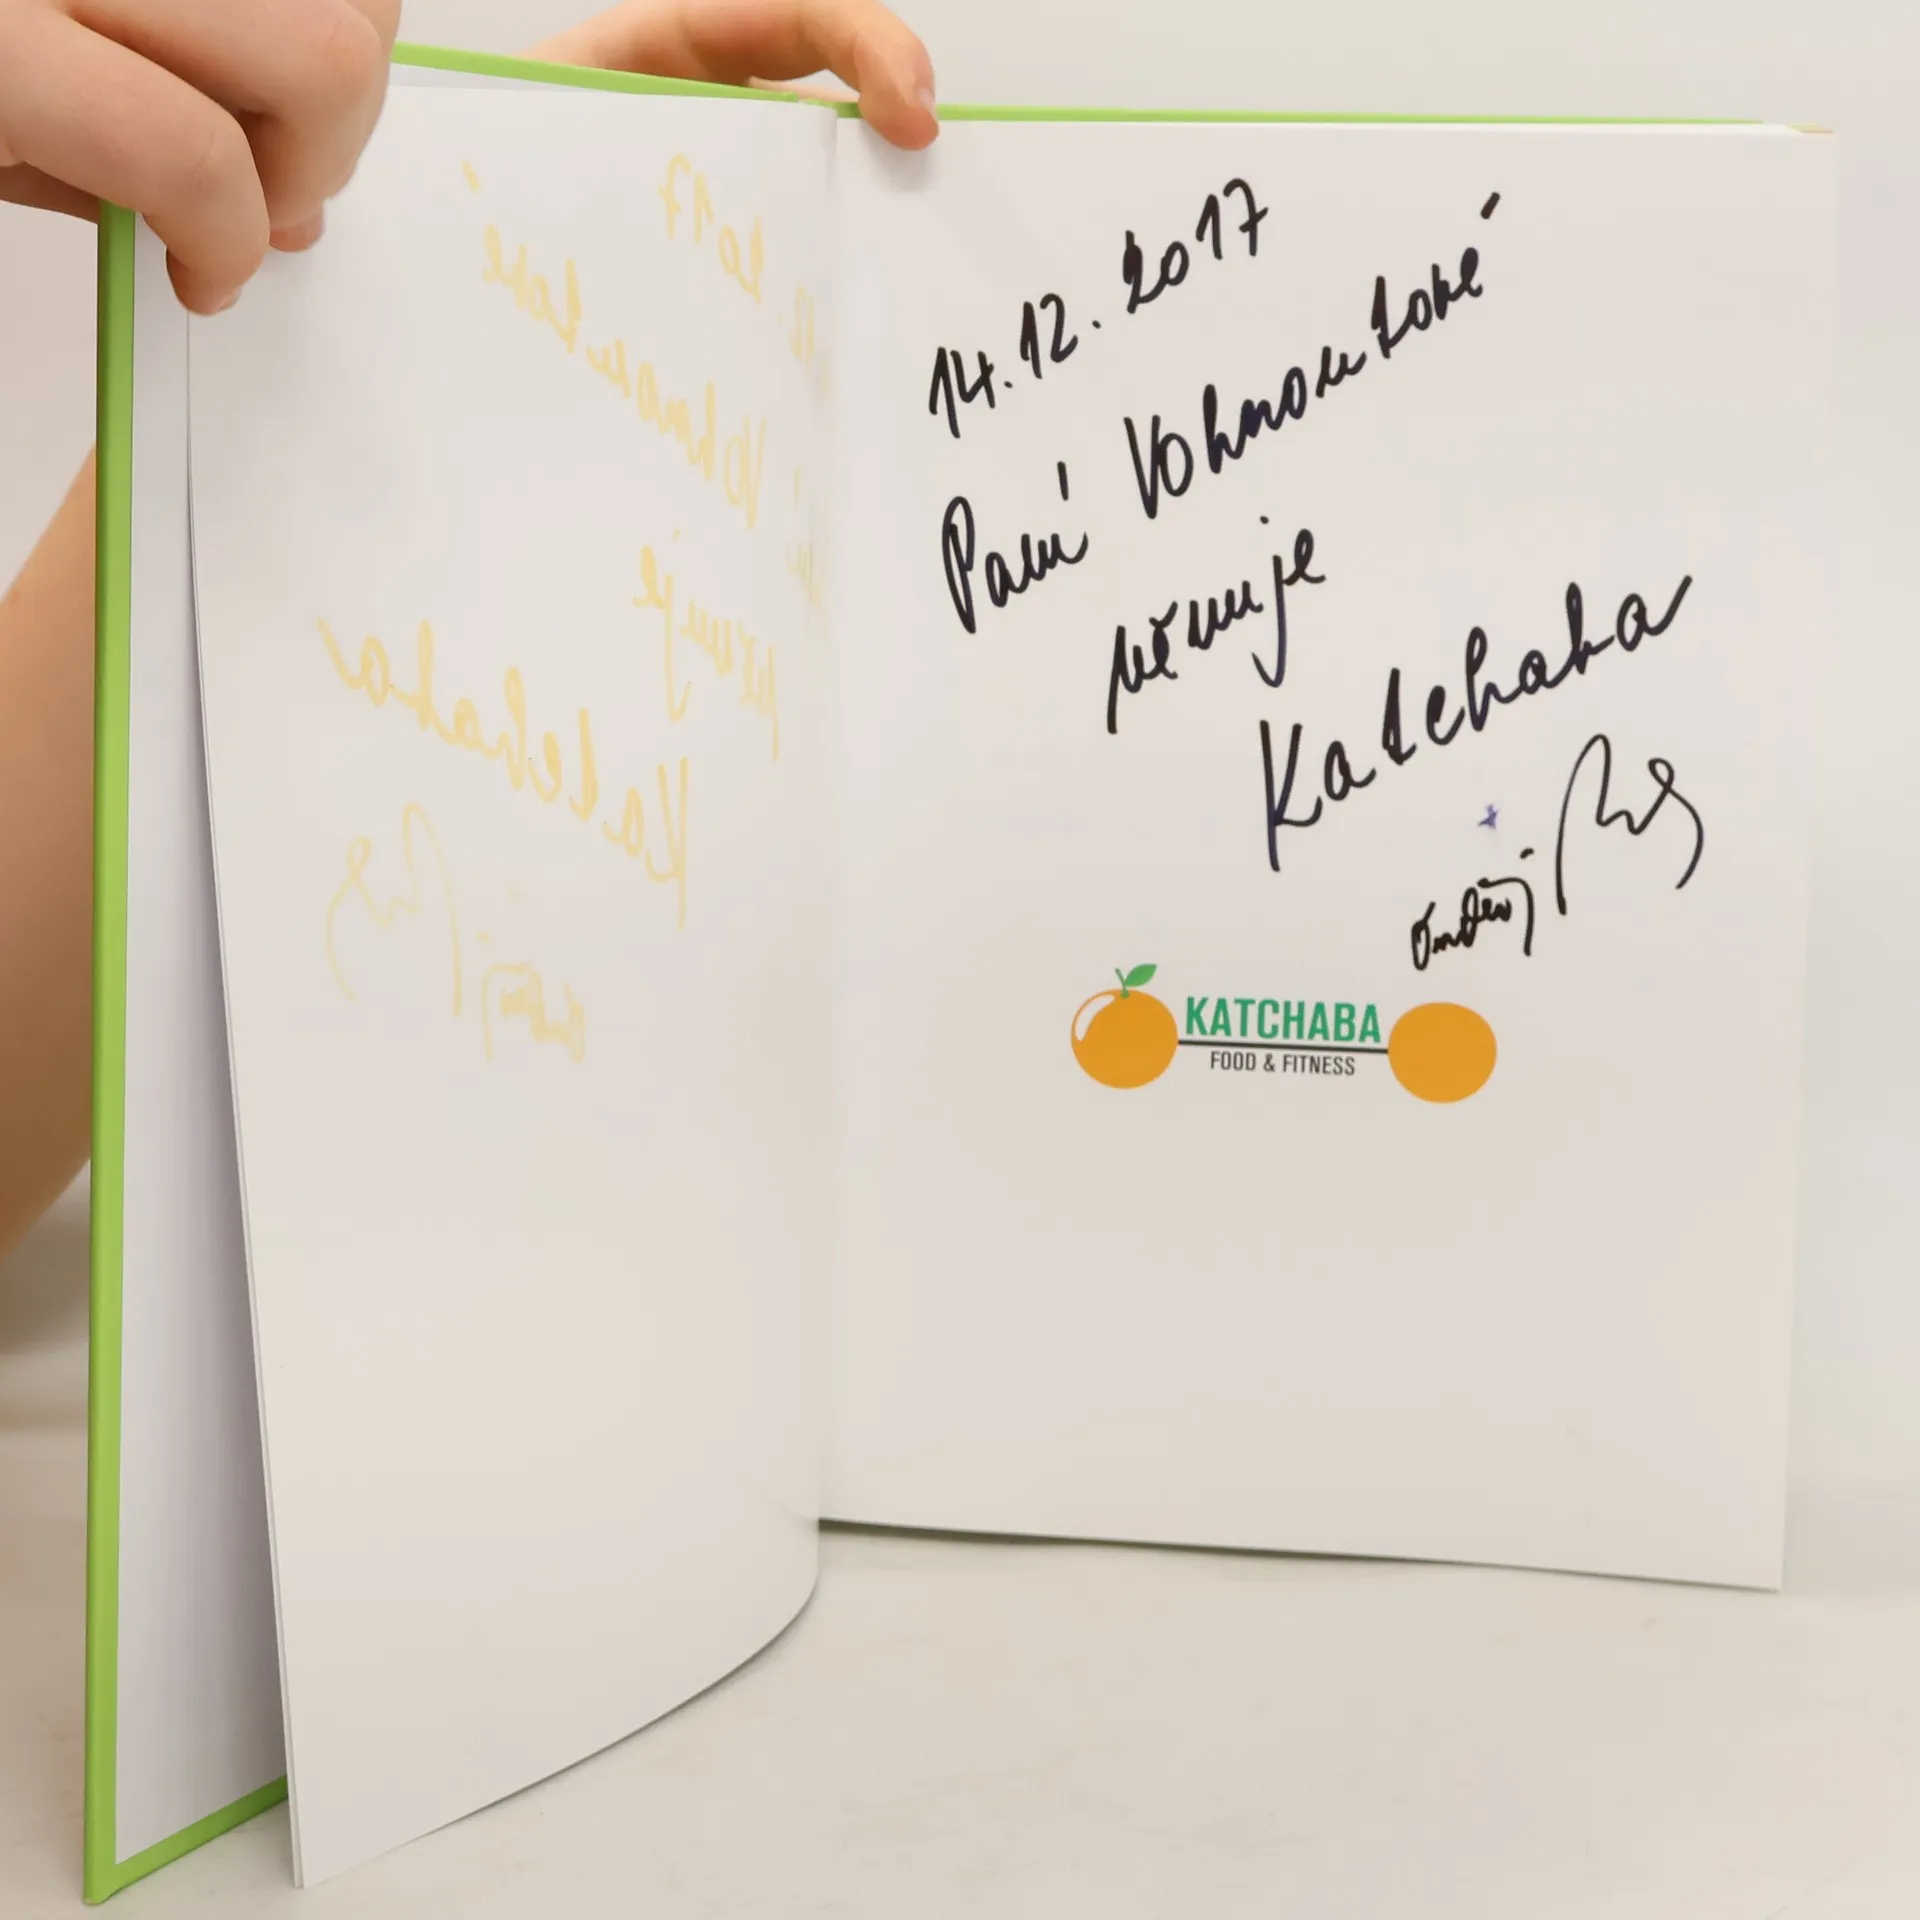 14.12.2017
Paní Vohnoutové
věnuje
Katchaba
Ondřej
KATCHABA
FOOD & FITNESS